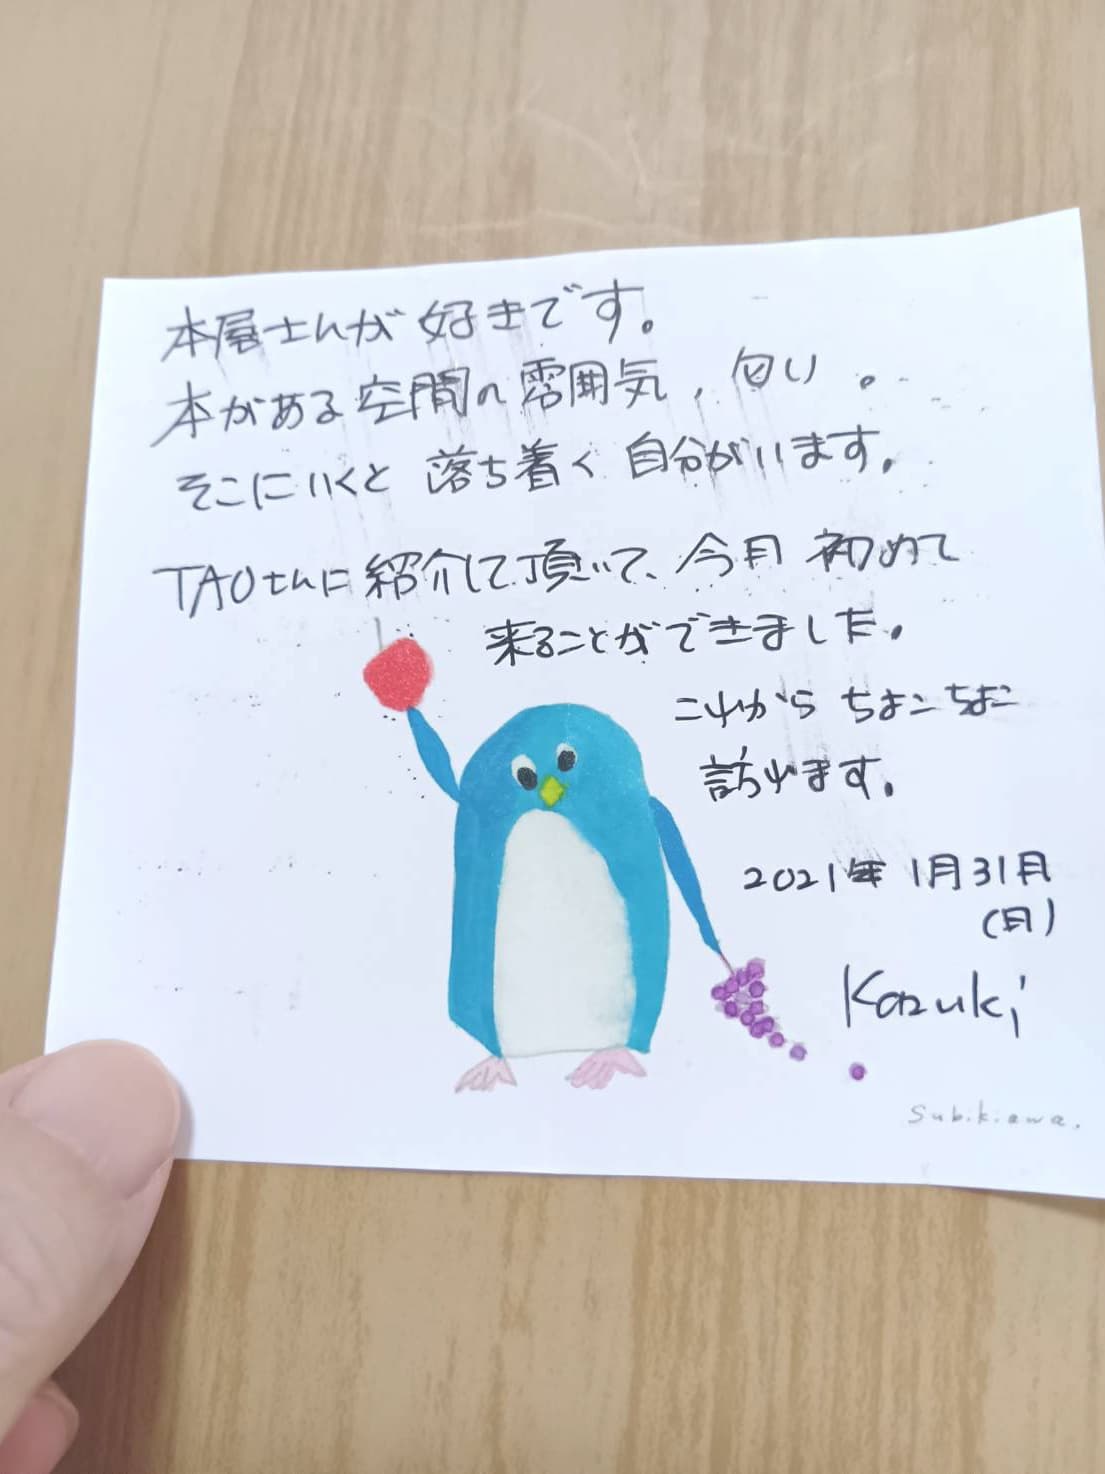 本屋さんが好きです。
本がある空間の雰囲気、匂い。
そこにいくと落ち着く自分がいます。
TAOさんに紹介して頂いて、今月初めて
来ることができました。
これからちょこちょこ
訪れます。
2021年1月31日
(日)
Kazuki
Subikiawa.